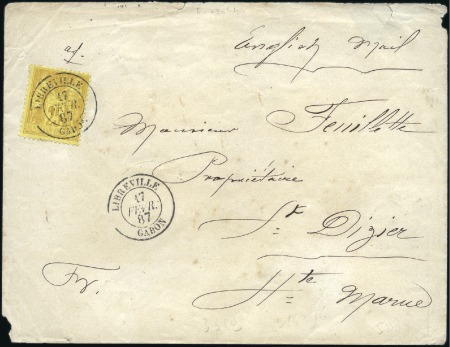 English Mail
af.
LIBREVILLE
17
FEVR.
87
GABON
Monsieur Feuillette
Propriétaire
LIBREVILLE
17
FEVR.
87
GABON
St Dizier
Fr.
Hte Marne